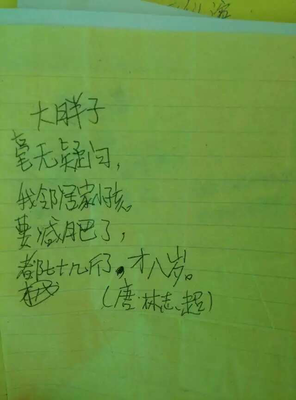 大胖子
毫无疑问,
我邻居家小孩。
要减肥了,
都七十几斤了,才八岁。
(唐·林志超)